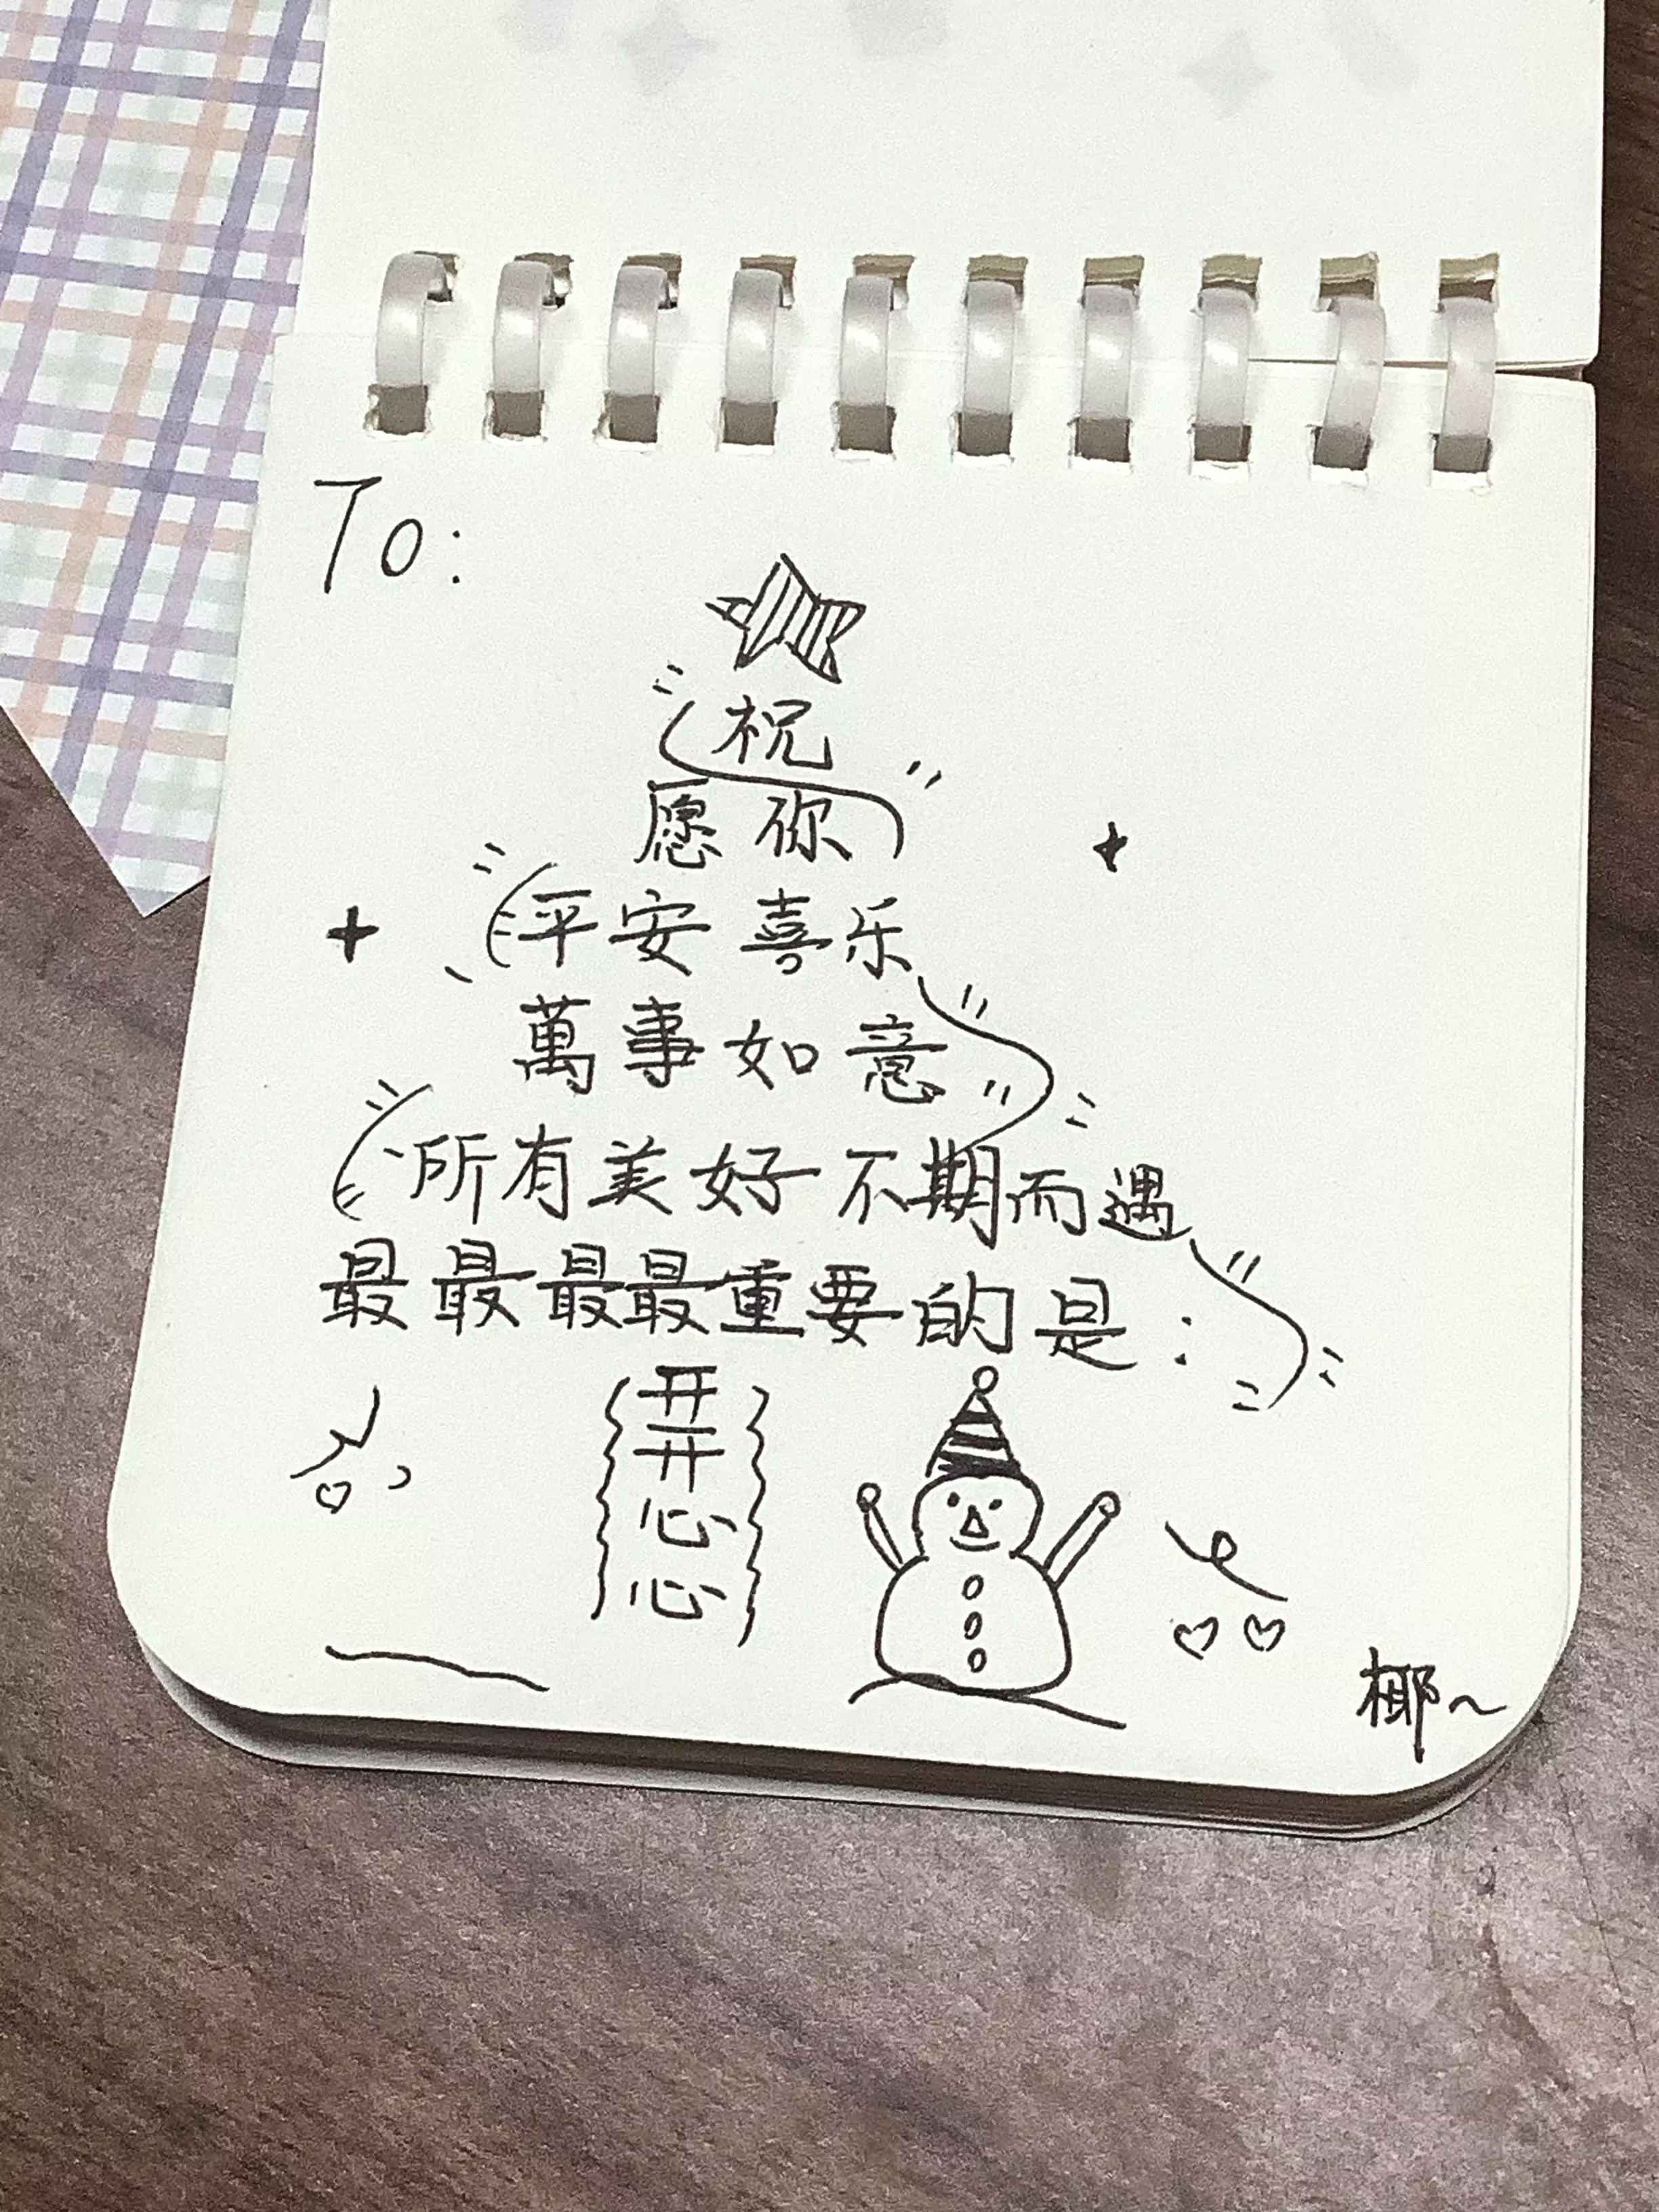 To:
祝
愿你
平安喜乐
萬事如意
所有美好不期而遇
最最最最重要的是:
开
开
心
心
椰~